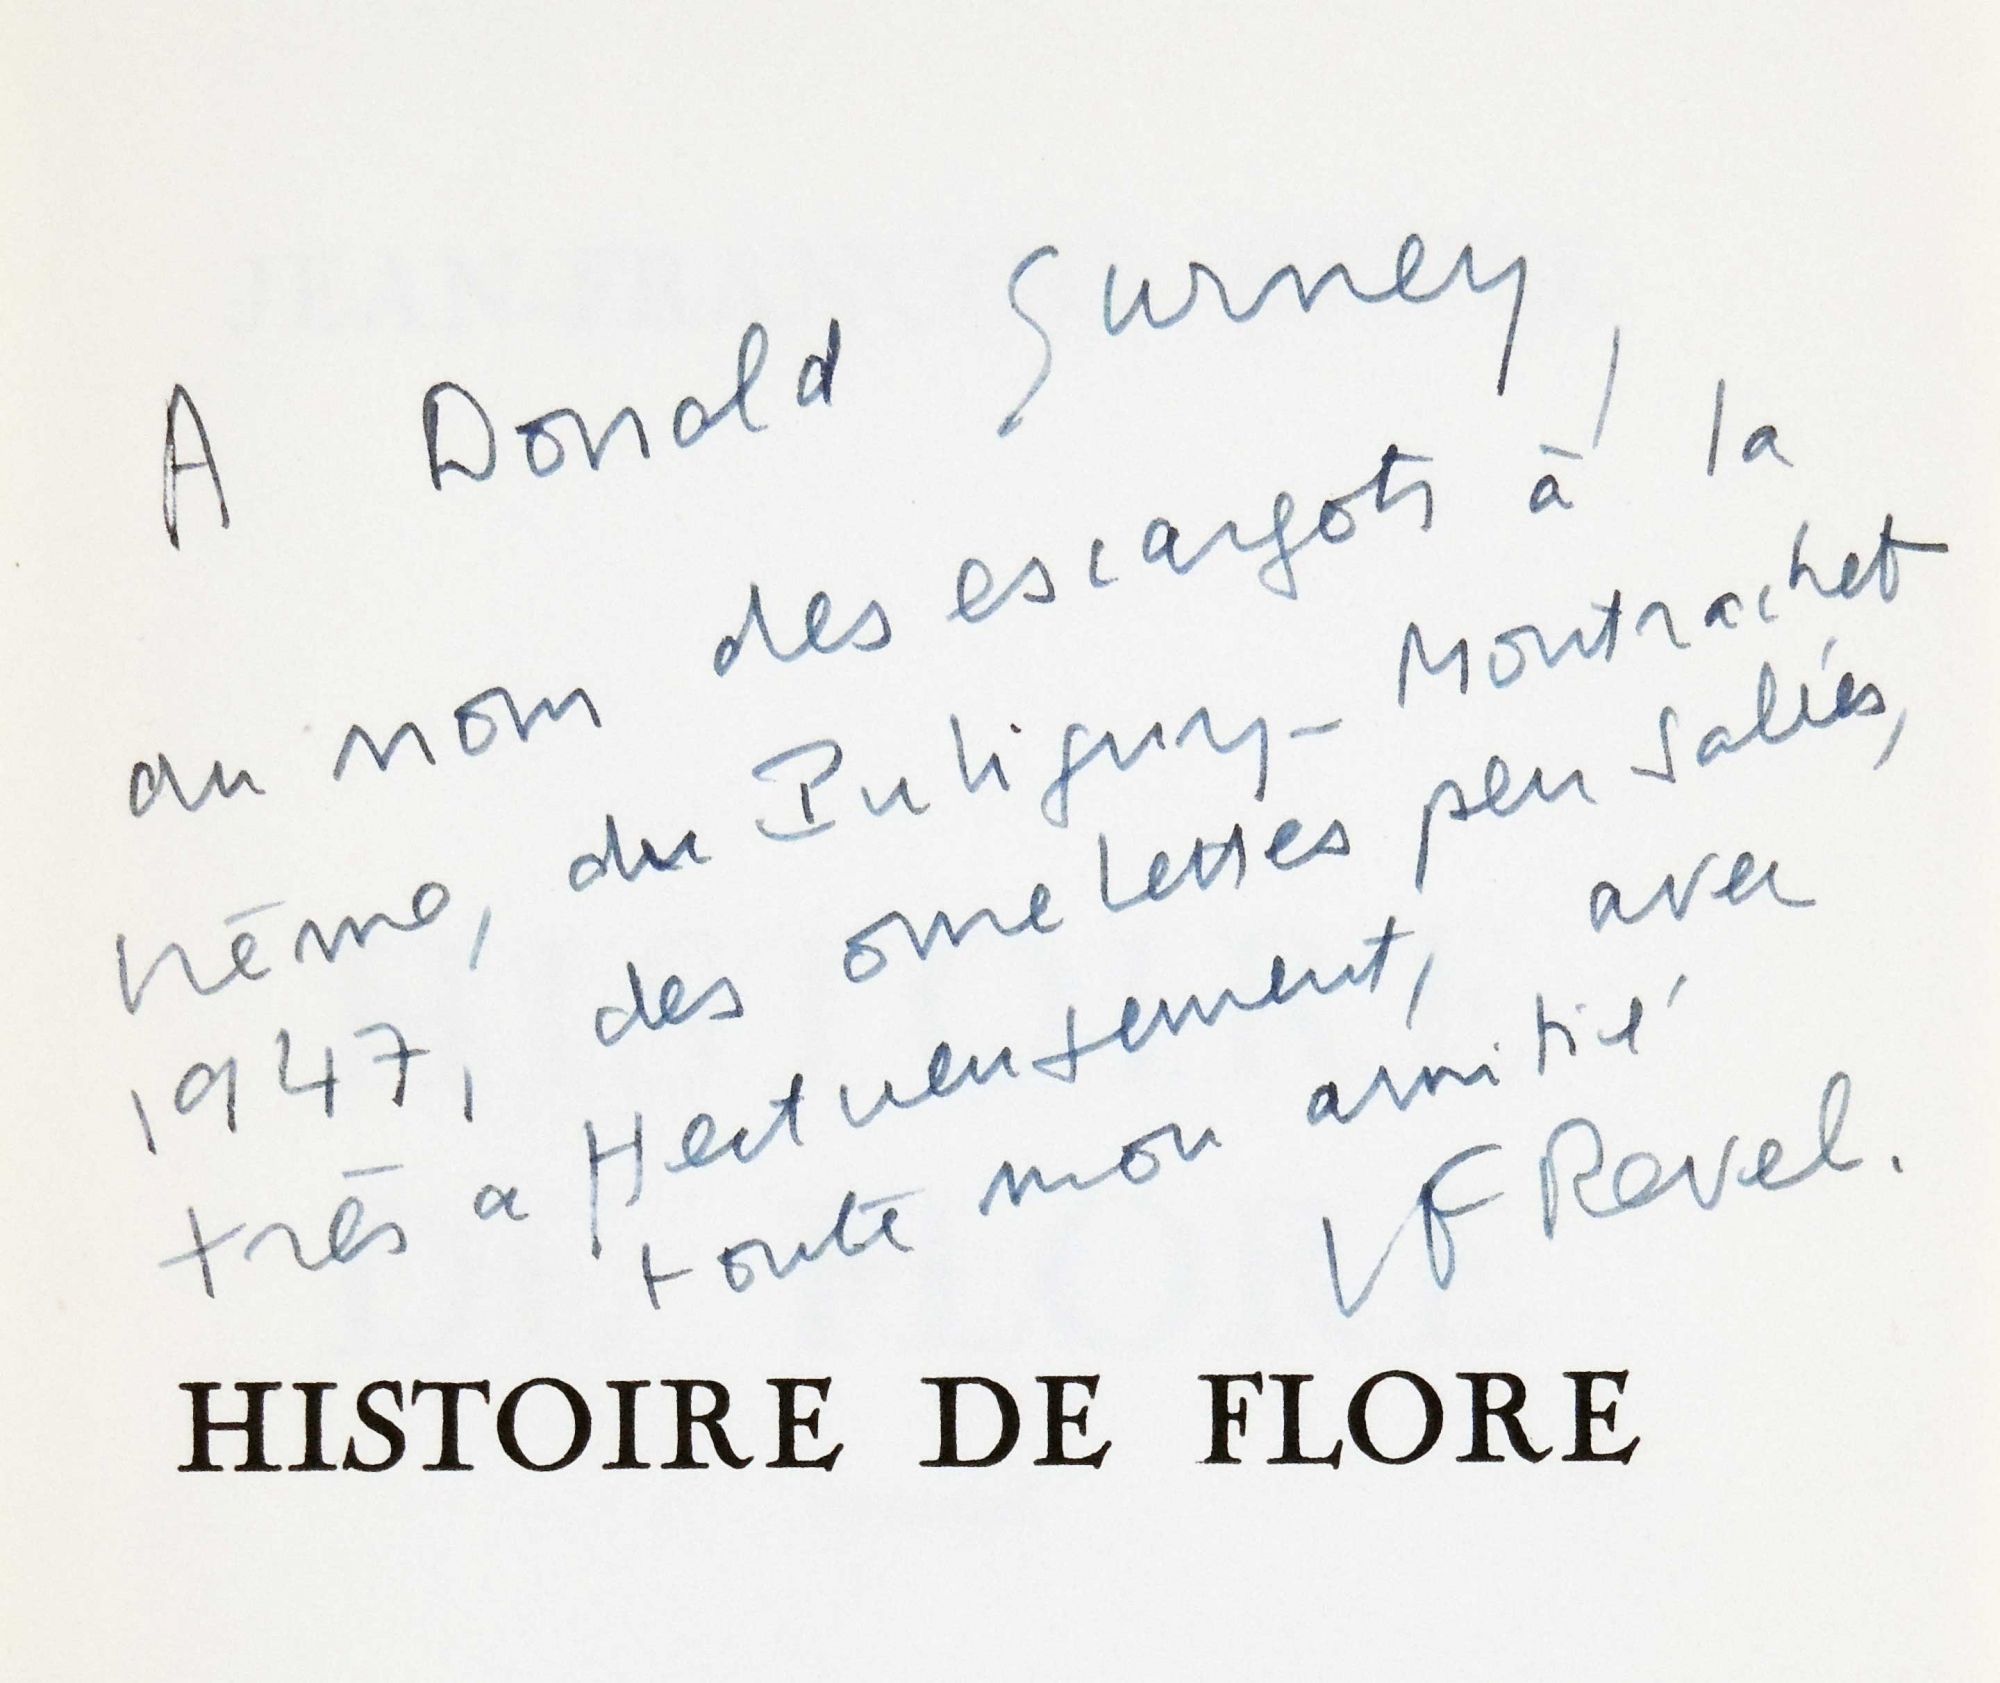 A Donald Gurney,
au nom des escargots à la
crème, du Puligny-Montrachet
1947, des omelettes peu salées,
très affectueusement, avec
toute mon amitié
JF Revel.
HISTOIRE DE FLORE